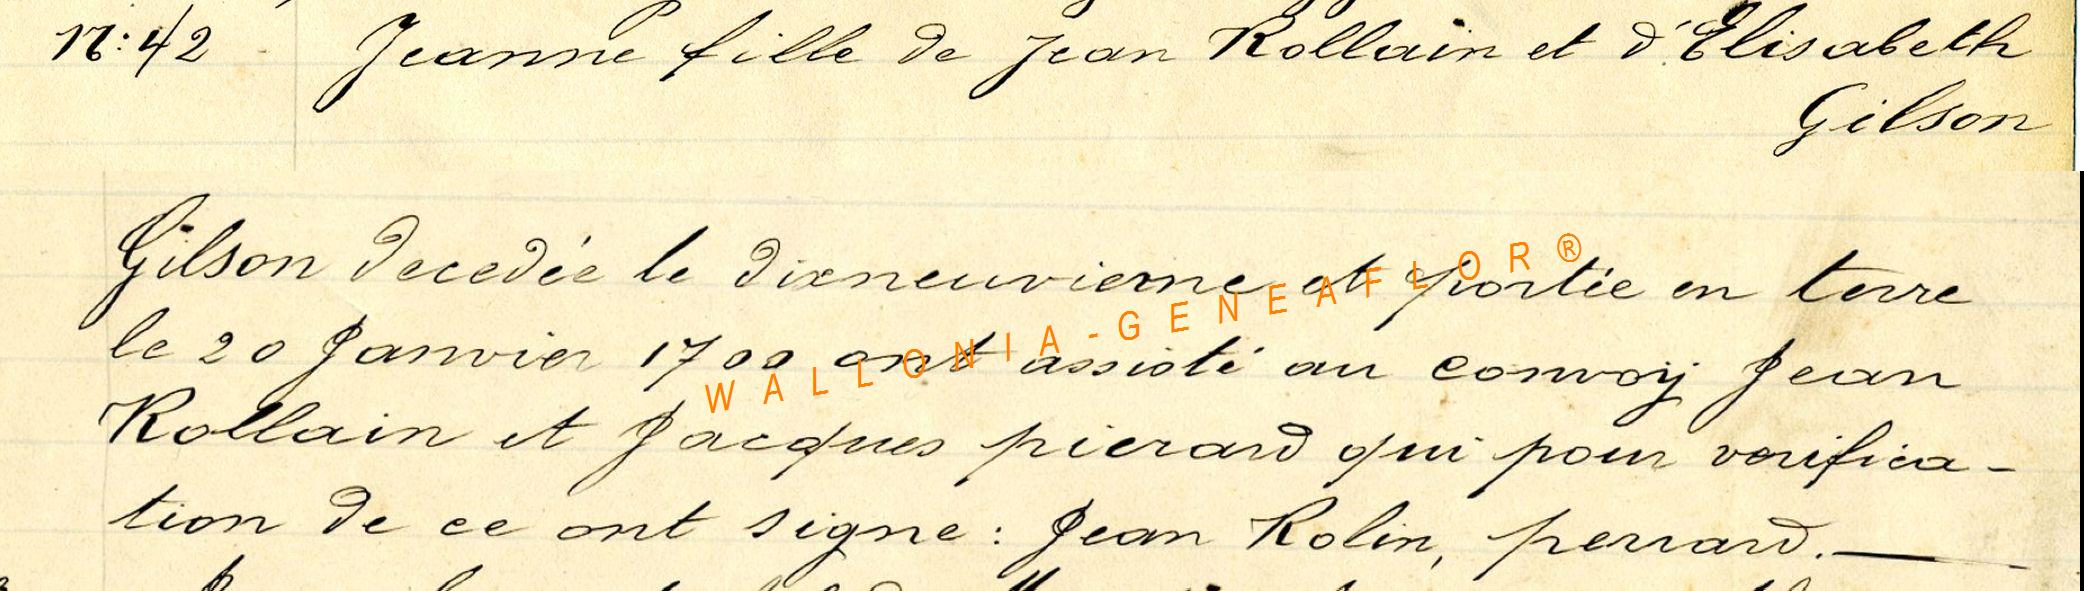 N:42 Jeanne fille de Jean Rollain et d'Elisabeth
Gilson
Gilson decedée le dixneuvieme et portée en terre
le 20 Janvier 1700 ont assisté au convoij Jean
Rollain et Jacques pierard qui pour verifica-
tion de ce ont signe: Jean Rolin, perrard.
WALLONIA-GENEAFLOR®